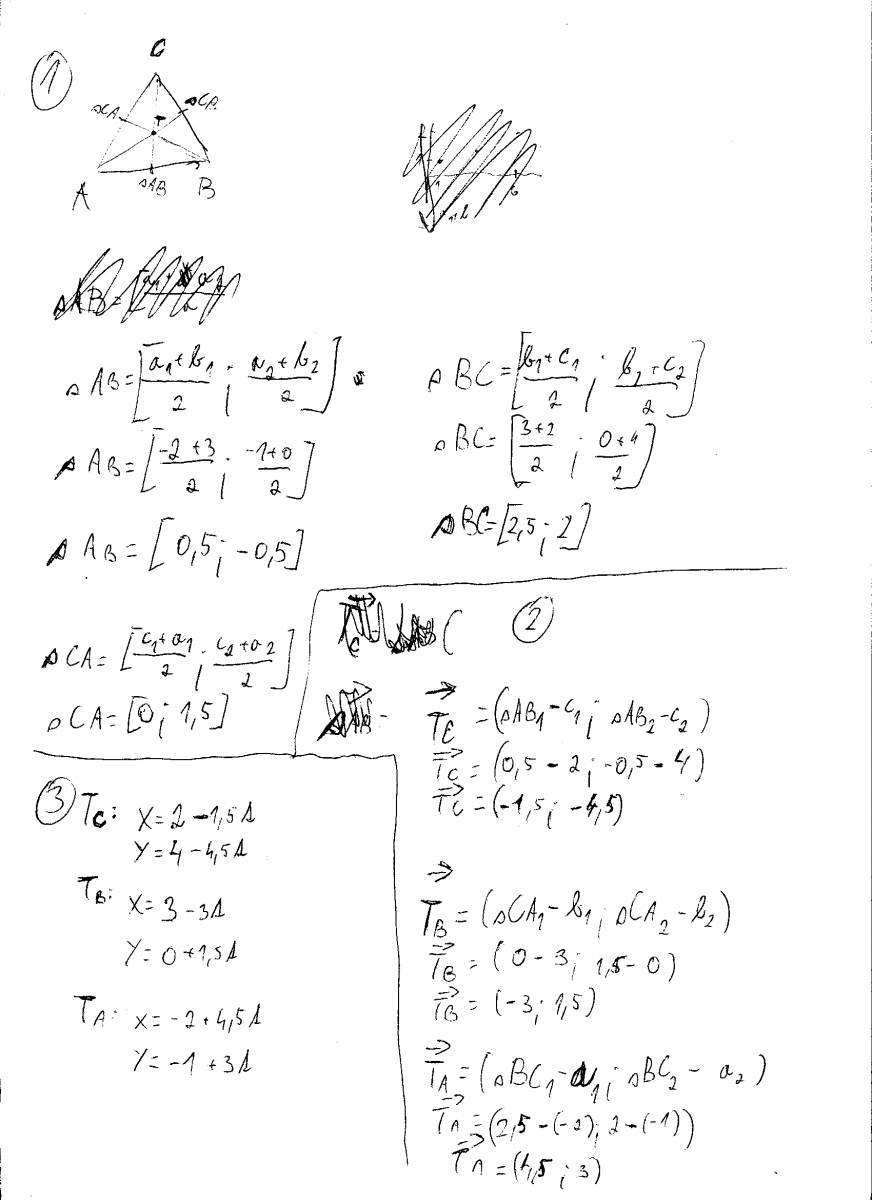 1
C
sCA
sCB
T
A
sAB
B
sAB = [(a₁+b₁)/2 ; (a₂+b₂)/2]
sAB = [(-2+3)/2 ; (-1+0)/2]
sAB = [0,5 ; -0,5]
sBC = [(b₁+c₁)/2 ; (b₂+c₂)/2]
sBC = [(3+2)/2 ; (0+4)/2]
sBC = [2,5 ; 2]
sCA = [(c₁+a₁)/2 ; (c₂+a₂)/2]
sCA = [0 ; 1,5]
2
T⃗c = (sAB₁-c₁ ; sAB₂-c₂)
T⃗c = (0,5 - 2 ; -0,5 - 4)
T⃗c = (-1,5 ; -4,5)
T⃗B = (sCA₁ - b₁ ; sCA₂ - b₂)
T⃗B = (0 - 3 ; 1,5 - 0)
T⃗B = (-3 ; 1,5)
T⃗A = (sBC₁ - a₁ ; sBC₂ - a₂)
T⃗A = (2,5 - (-2) ; 2 - (-1))
T⃗A = (4,5 ; 3)
3
Tc: X = 2 - 1,5s
Y = 4 - 4,5s
TB: X = 3 - 3s
Y = 0 + 1,5s
TA: X = -2 + 4,5s
Y = -1 + 3s